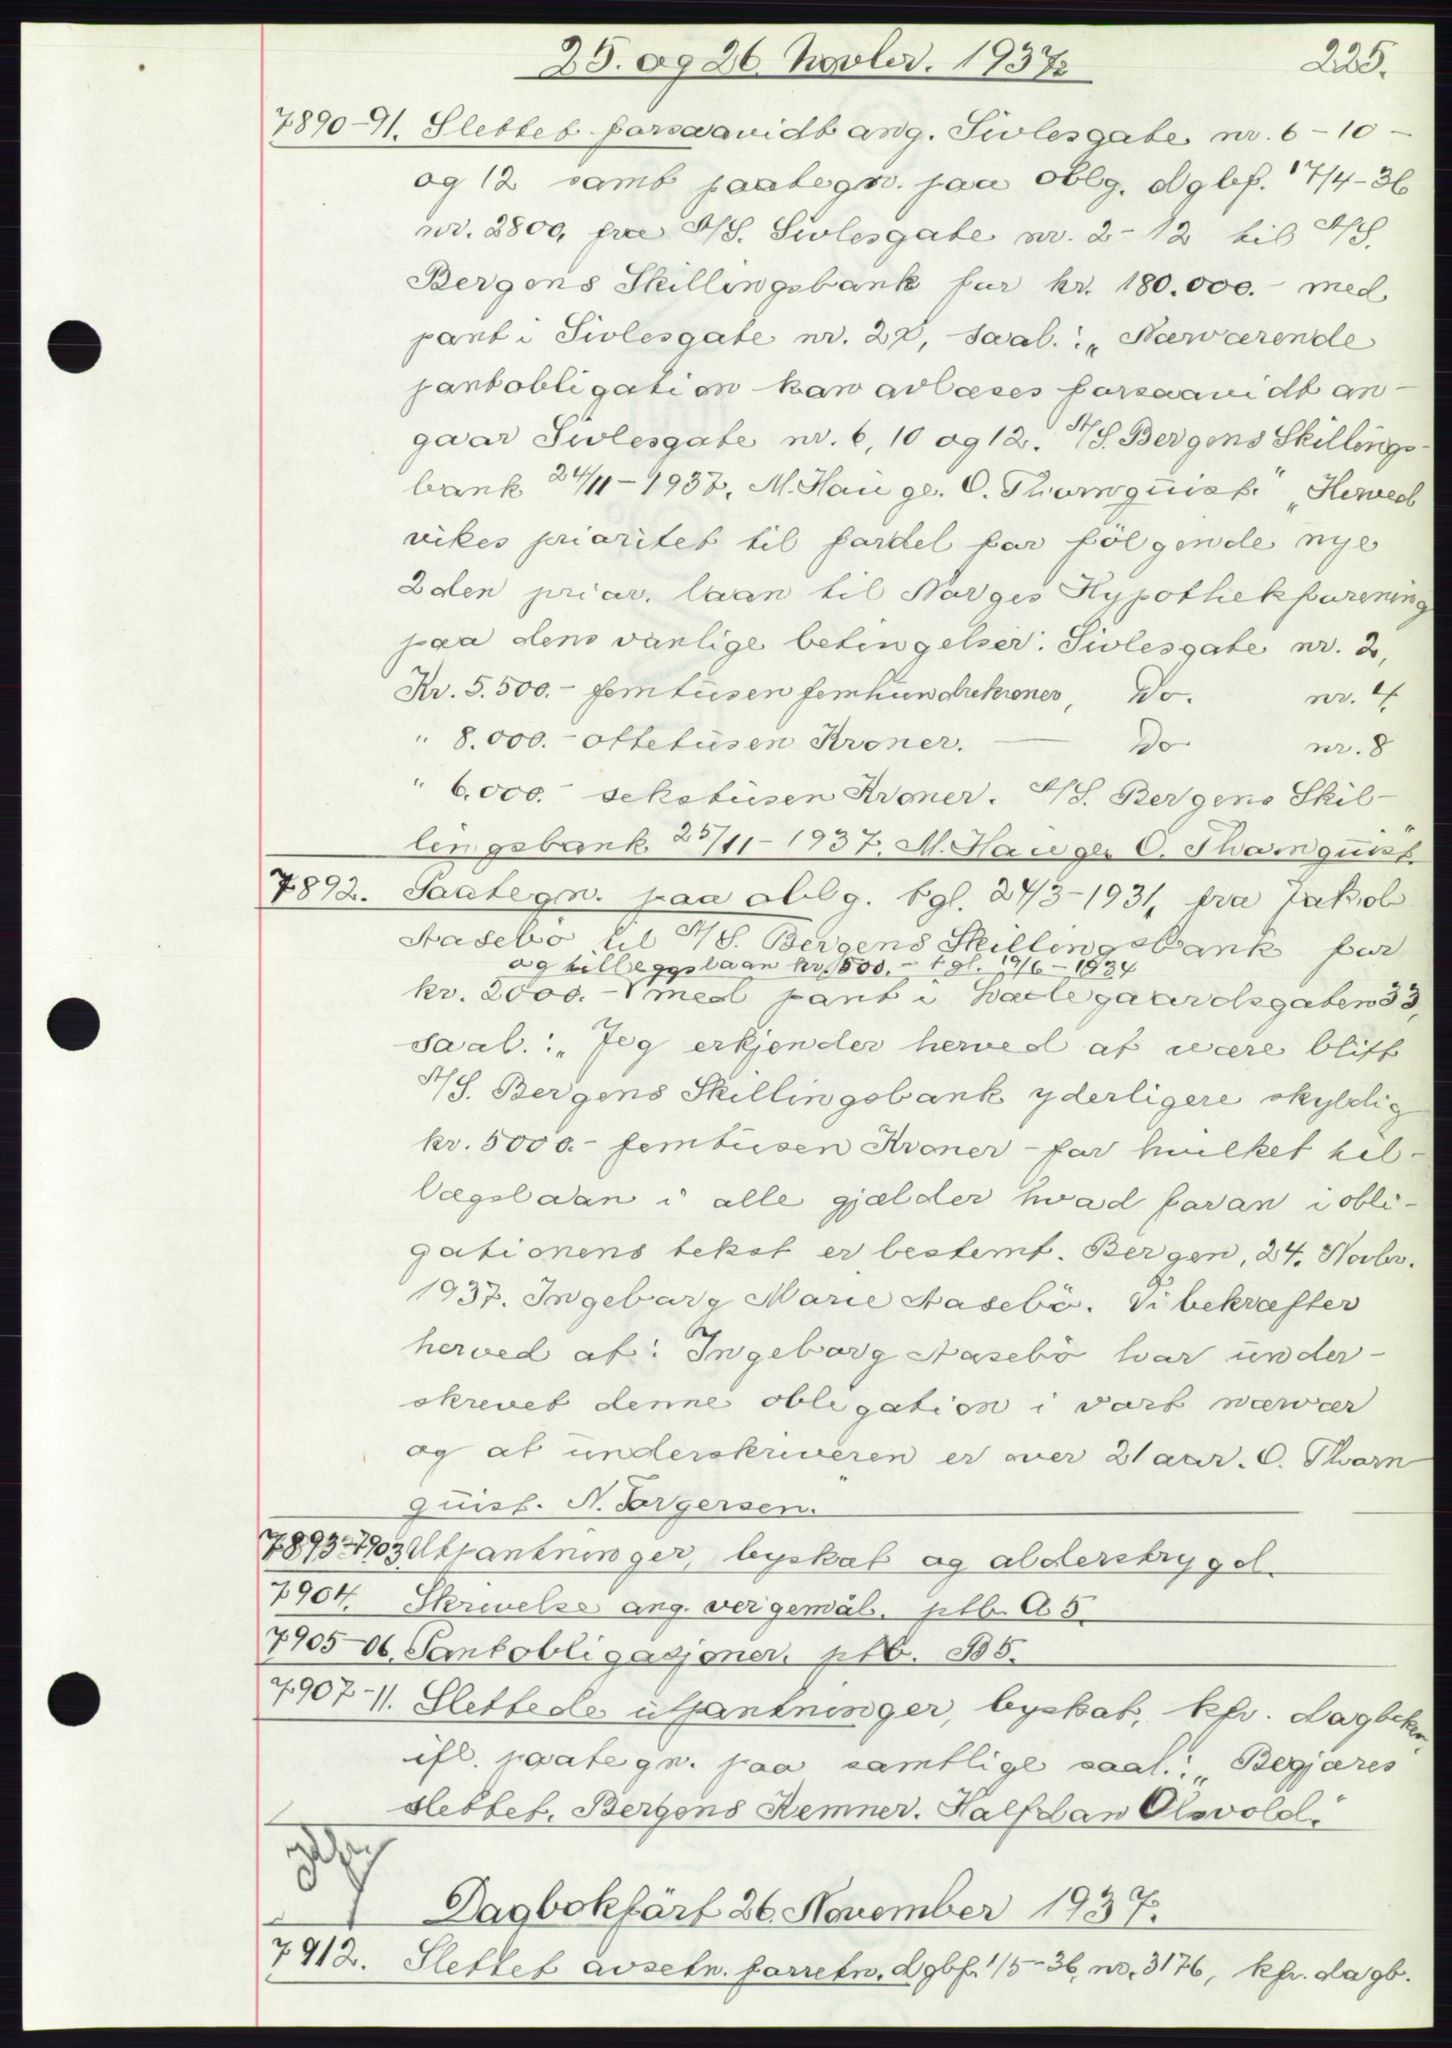 25. og 26. Novbr. 1937. 225.
7890-91. Slettet forsaavidt ang. Sivlesgate nr. 6-10-
og 12 samt paategn. paa oblg. dgbf. 17/4-36
nr. 2800, fra A/S. Sivlesgate nr. 2-12 til A/S.
Bergens Skillingsbank for kr. 180.000.- med
pant i Sivlesgate nr. 2, saal.: „Nærværende
pantobligation kan avlæses forsaavidt an-
gaar Sivlesgate nr. 6, 10 og 12. A/S. Bergens Skillings-
bank 24/11-1937. M. Hauge. O. Thornquist." „Herved
vikes prioritet til fordel for følgende nye
2den prior. laan til Norges Hypothekforening
paa dens vanlige betingelser: Sivlesgate nr. 2,
Kr. 5.500.- femtusen femhundrekroner, Do. nr. 4.
" 8.000.- ottetusen Kroner. — Do nr. 8
" 6.000.- sekstusen Kroner. A/S. Bergens Skil-
lingsbank 25/11-1937. M. Hauge. O. Thornquist."
7892. Paategn. paa oblg. tgl. 24/3-1931, fra Jakob
Aasebö til A/S. Bergens Skillingsbank for
og tilleggslaan kr. 500.- tgl. 19/6-1934
kr. 2000.- V med pant i Ladegaardsgaten 33,
saal.: „Jeg erkjender herved at være blitt
A/S. Bergens Skillingsbank yderligere skyldig
kr. 5000.- femtusen Kroner - for hvilket til-
lægslaan i alle gjælder hvad foran i obli-
gationens tekst er bestemt. Bergen, 24. Novbr.
1937. Ingeborg Marie Aasebö. Vi bekræfter
herved at: Ingeborg Aasebö har under-
skrevet denne obligation i vort nærvær
og at underskriveren er over 21 aar. O. Thorn-
quist. N. Torgersen."
7893-7903. Utpantninger, byskat og alderstrygd.
7904. Skrivelse ang. vergemål. ptb. A 5.
7905-06. Pantobligasjoner. ptb. B 5.
7907-11. Slettede utpantninger, byskat, kfr. dagboken,
ifl. paategn. paa samtlige saal.: „Begjæres
slettet. Bergens Kemner. Halfdan Olsvold."
Dagbokført 26. November 1937.
7912. Slettet avsetn. forretn. dgbf. 1/5-36, nr. 3176, kfr. dagb.